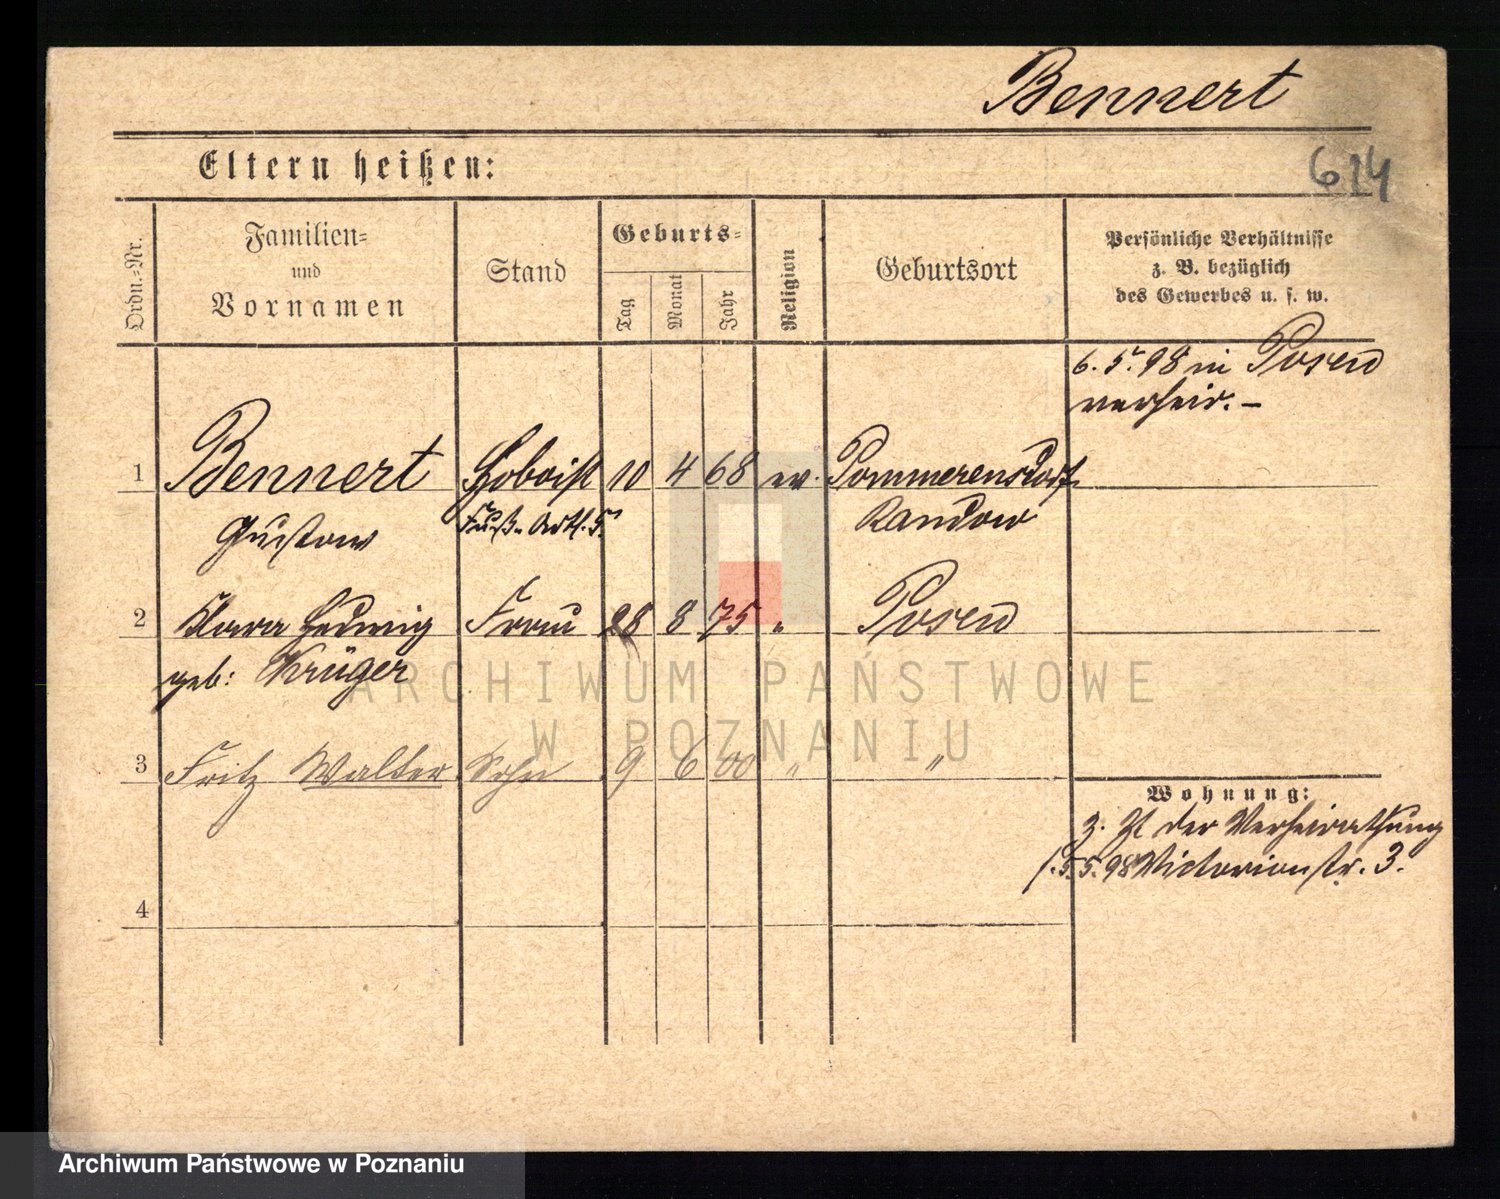 Bennert
Eltern heißen:
614
Ordn.-Nr.
Familien-
und
Vornamen
Stand
Geburts-
Tag
Monat
Jahr
Religion
Geburtsort
Persönliche Verhältnisse
z. B. bezüglich
des Gewerbes u. s. w.
6. 5. 98 in Posen
verheir. –
1 Bennert Hoboist 10 4 68 ev. Pommerensdorf
Gustav Fuß-Artl. 5. Randow
2 Klara Hedwig Frau 28 8 75 " Posen
geb: Krüger
3 Fritz Walter Sohn 9 6 00 " "
Wohnung:
z. Zt der Verheirathung
1. 5. 5. 98 Victoriastr. 3.
4
ARCHIWUM PAŃSTWOWE
W POZNANIU
Archiwum Państwowe w Poznaniu